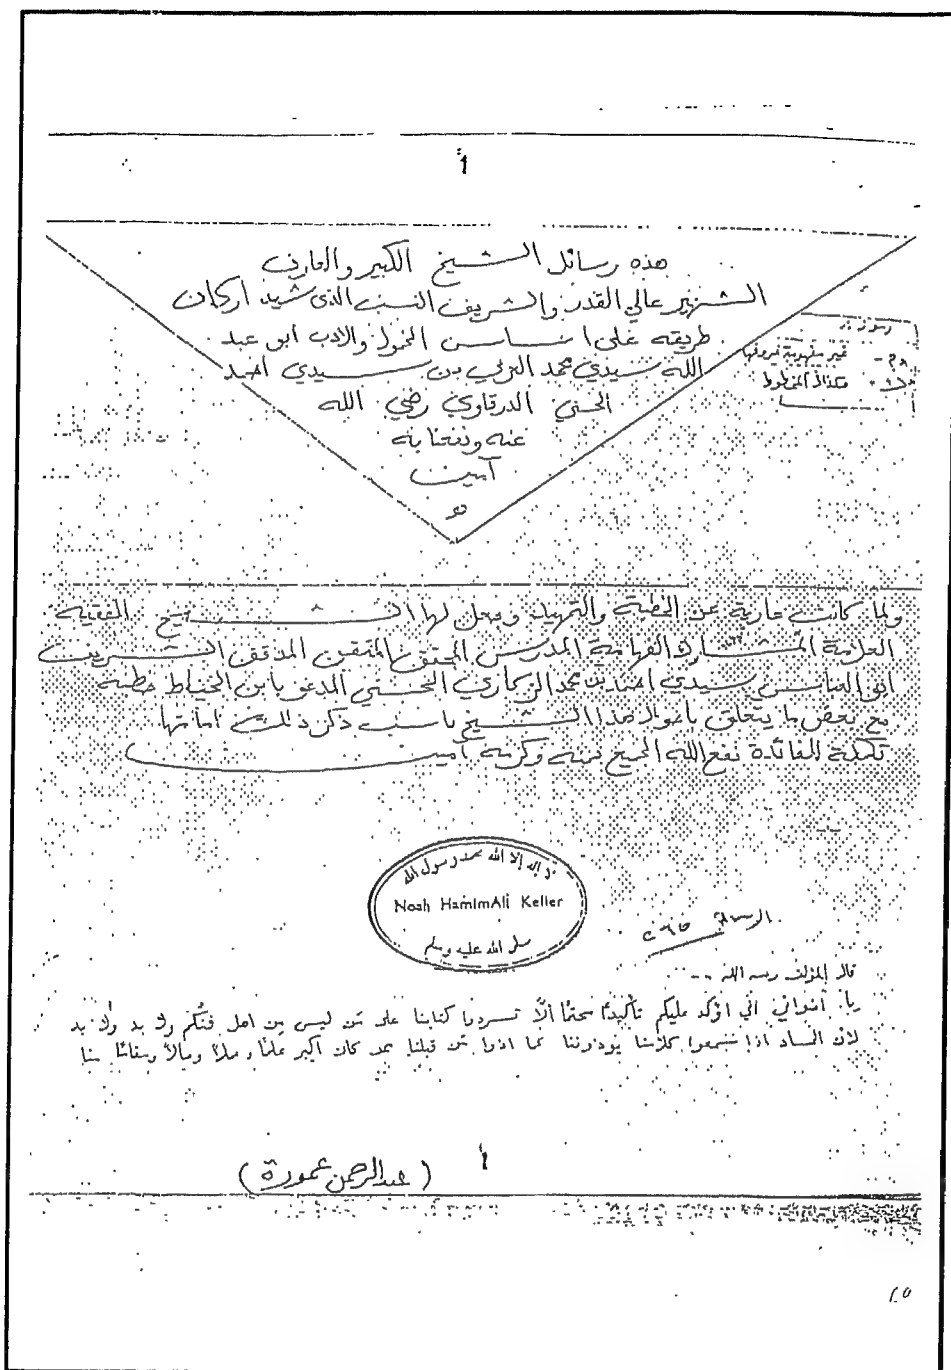 أ
هذه رسائل الشيخ الكبير والعارف
الشهير عالي القدر والشريف النسب الذي شيد اركان
طريقه على اساس الخمول والادب ابو عبد
الله سيدي محمد العربي بن سيدي احمد
الحسني الدرقاوي رضي الله
عنه ونفعنا به
آمين
رموز
غير مفهومة فيروفها
هكذا المخطوط
ولما كانت عارية عن الخطبة والتمهيد وجعل لها الشيخ الفقيه
العلامة المشارك الفهامة المدرس المحقق المتقن المدقق الشريف
ابو العباس سيدي احمد بن محمد الزكاري الحسني المدعو بابن الخياط خطبة
مع بعض ما يتعلق باحوال هذا الشيخ ناسب ذكر ذلك امامها
تكملة للفائدة نفع الله الجميع بمنه وكرمه آمين
لا إله إلا الله محمد رسول الله
Noah HamimAli Keller
صلى الله عليه وسلم
الرسالة
قال المؤلف رحمه الله --
يا إخواني اني اؤكد عليكم تأكيدًا محقًا ألَّا تسردوا كتابنا على مَن ليس من اهل فنكم ولا بد ولا بد
لأن الساد اذا سمعوا كلامنا يوذوننا كما اذوا مَن قبلنا ممد كان اكبر علمًا وعملًا وحالًا ومقامًا منا
أ
(عبدالرحمن عمورة)
٢٥